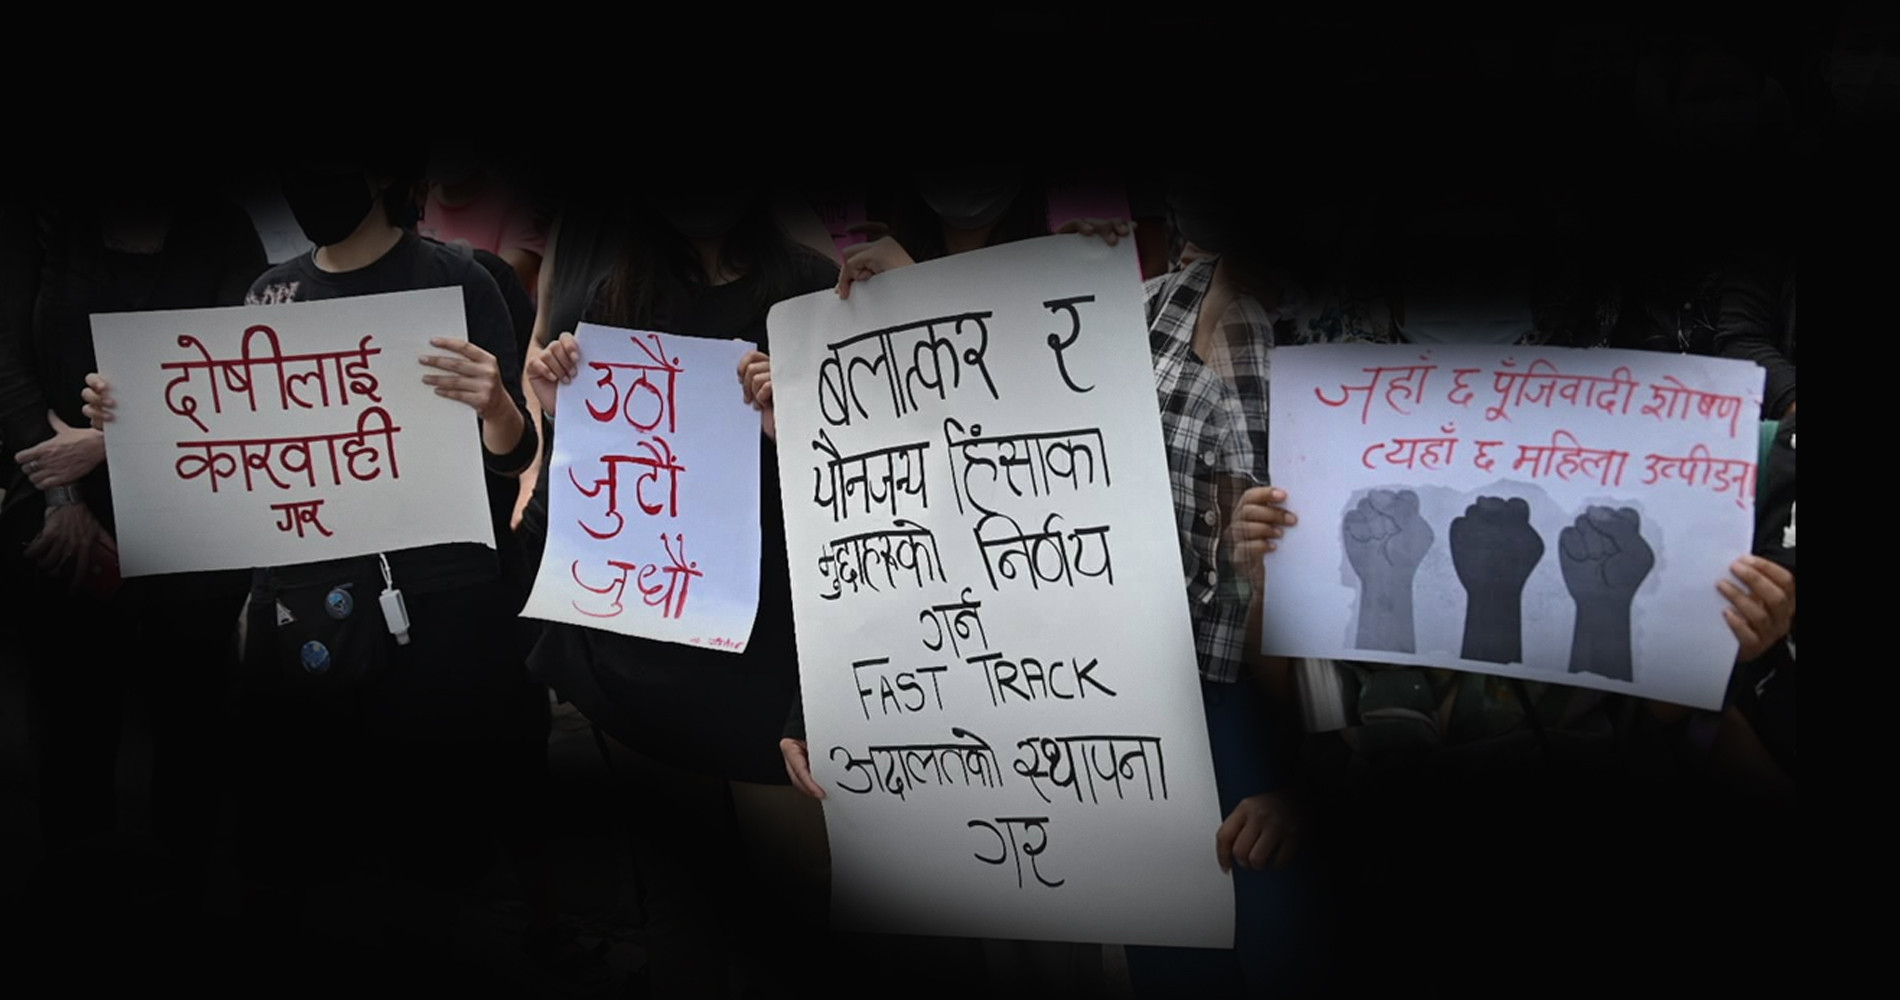 दोषीलाई
कारवाही
गर
उठौं
जुटौं
जुधौं
बलात्कर र
यौनजन्य हिंसाका
मुद्दाहरुको निर्णय
गर्न
FAST TRACK
अदालतको स्थापना
गर
जहाँ छ पूँजिवादी शोषण
त्यहाँ छ महिला उत्पीडन